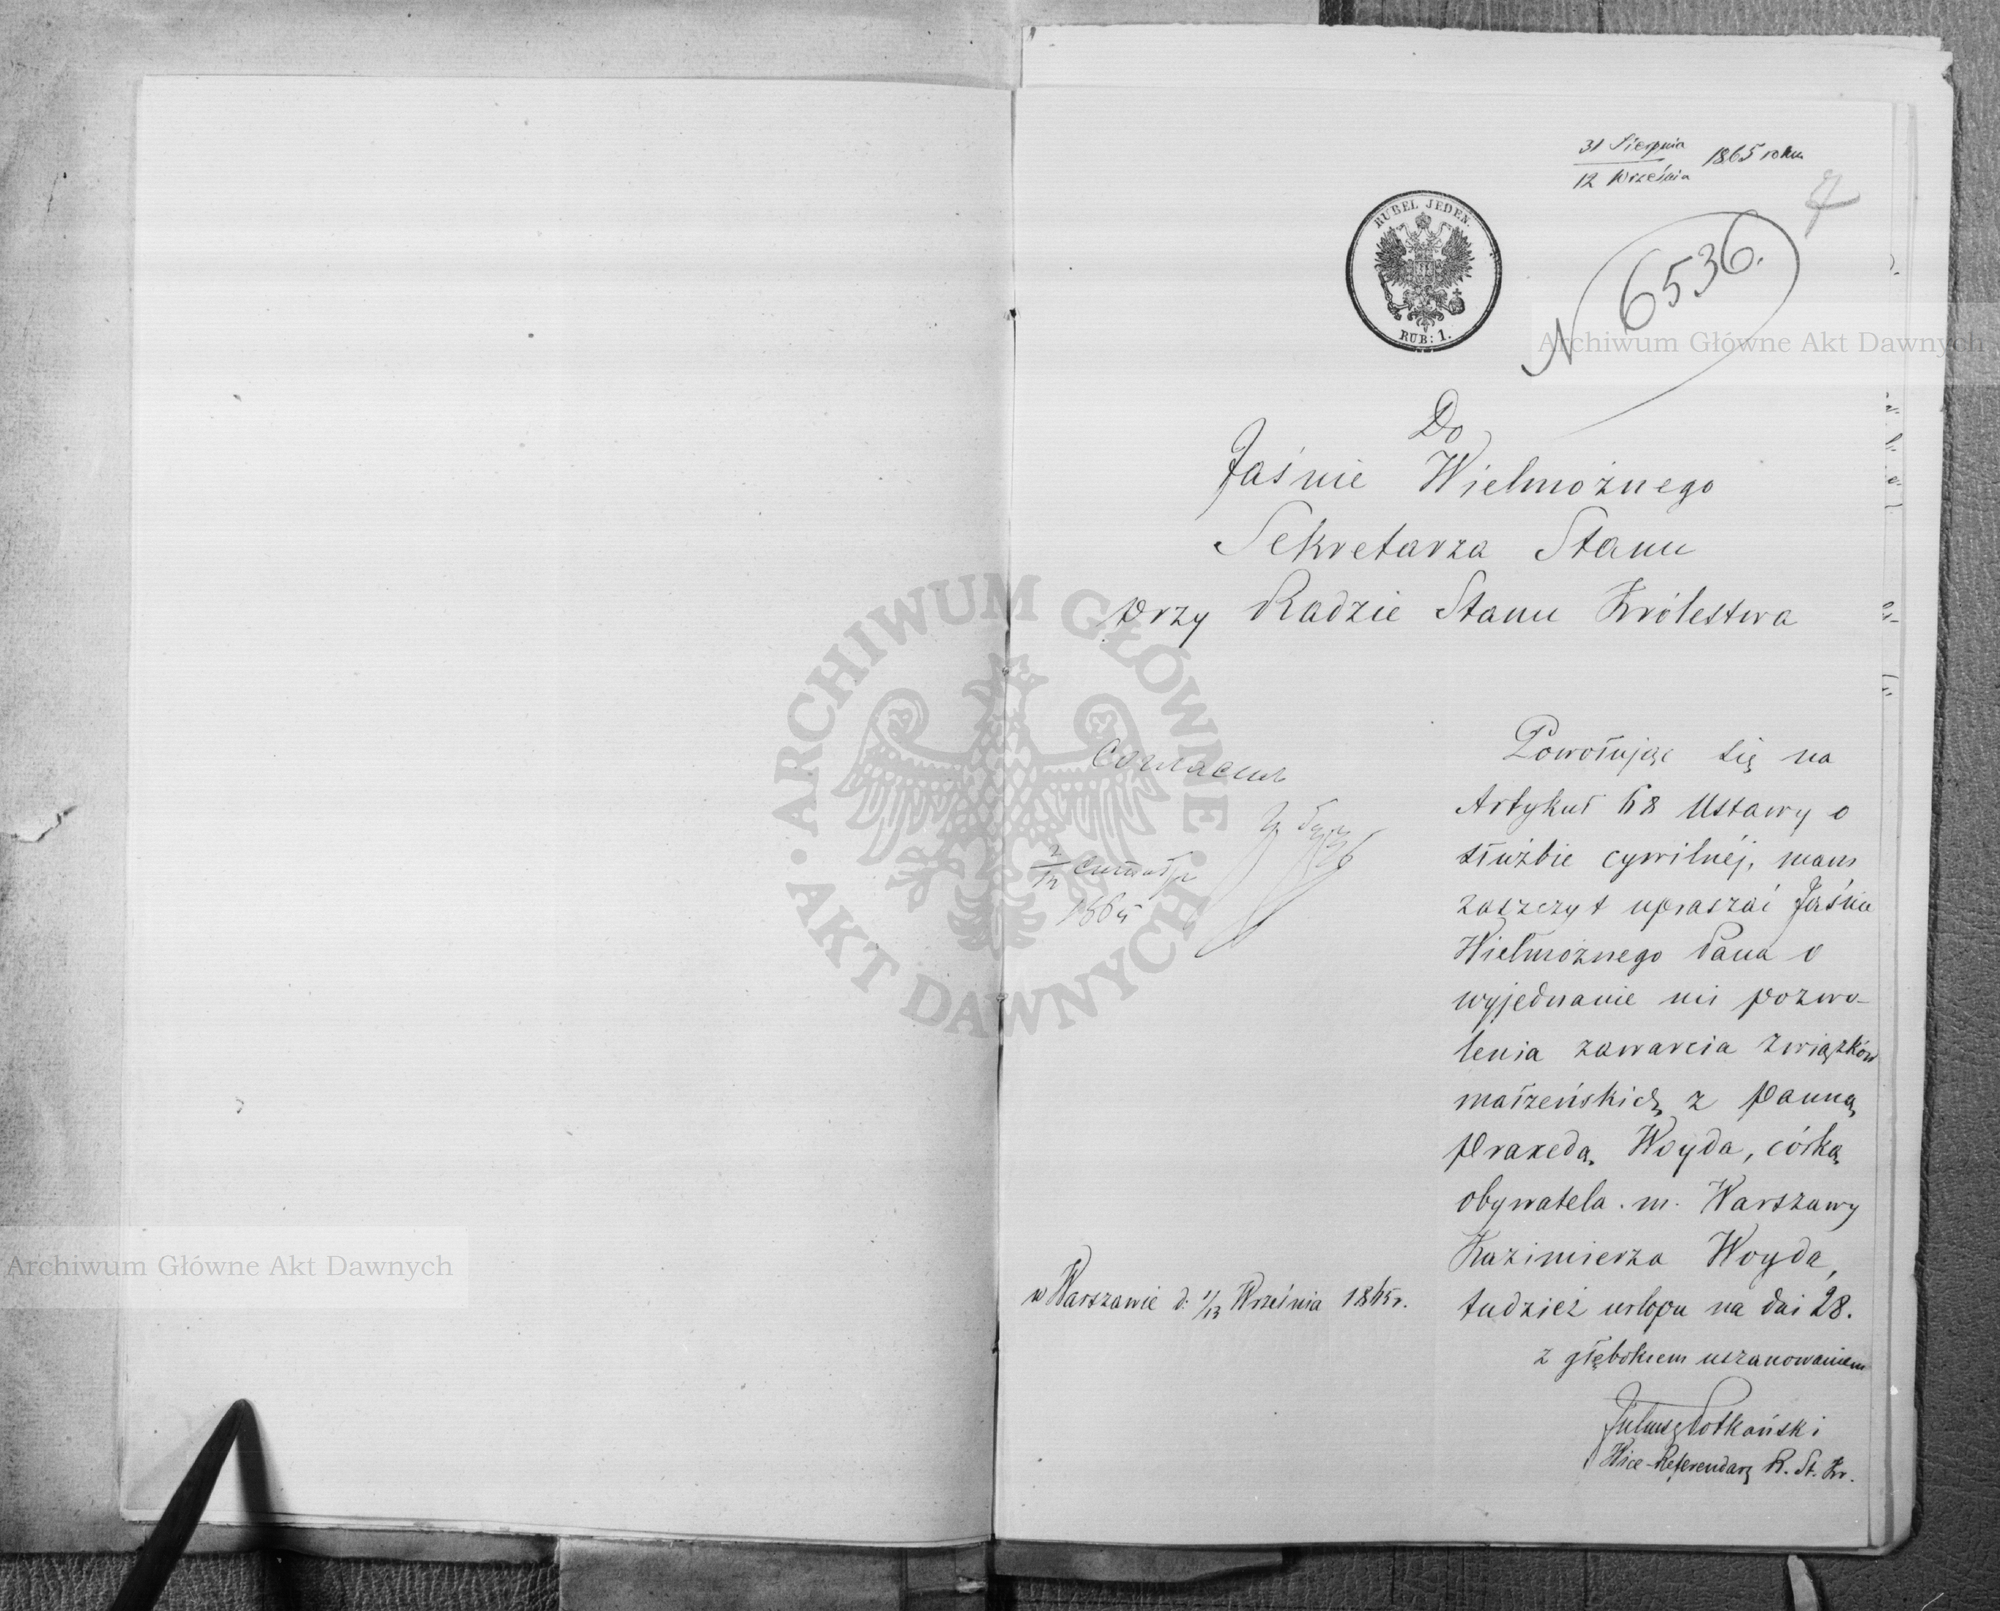 31 Sierpnia
12 Września
1865 roku
RUBEL JEDEN.
RUB: 1.
N 6536.
Do
Jaśnie Wielmożnego
Sekretarza Stanu
przy Radzie Stanu Królestwa
Powołując się na
Artykuł 68 Ustawy o
służbie cywilnéj, mam
zaszczyt upraszać Jaśnie
Wielmożnego Pana o
wyjednanie mi pozwo-
lenia zawarcia związków
małżeńskich z Panną
Praxedą Woyda, córką
obywatela m. Warszawy
Kazimierza Woyda,
tudzież urlopu na dni 28.
z głębokiem uszanowaniem
Juliusz Potkański
Vice-Referendarz R. St. Kr.
Согласенъ
1865
w Warszawie d: 1/13 Września 1865 r.
ARCHIWUM GŁÓWNE · AKT DAWNYCH ·
Archiwum Główne Akt Dawnych
Archiwum Główne Akt Dawnych